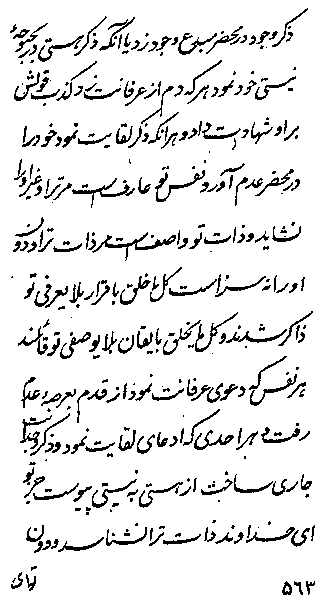 ذکر وجود در محضر مبدع وجود زد یا آنکه ذکر هستی در بحبوحهٔ
نیستی خود نمود هر که دم از عرفانت زد کذب قولش
بر او شهادت داد و هر آنکه ذکر لقایت نمود خود را
در محضر عدم آورد نفس تو عارف است مر ترا و غیر او را
نشاید و ذات تو واصف است مر ذات ترا و دون
او را نه سزا است کل ما خلق باقرار بلا یعرفی تو
ذاکر شدند و کل ما یخلق بایقان بلا یوصفی تو قائلند
هر نفس که دعوی عرفانت نمود از قدم بعرصهٔ عدم
رفت و هر احدی که ادعای لقایت نمود و ذکر وجدانت
جاری ساخت از هستی به نیستی پیوست جز تو
ای خداوند ذات ترا نشناسد و دون
۵۶۳